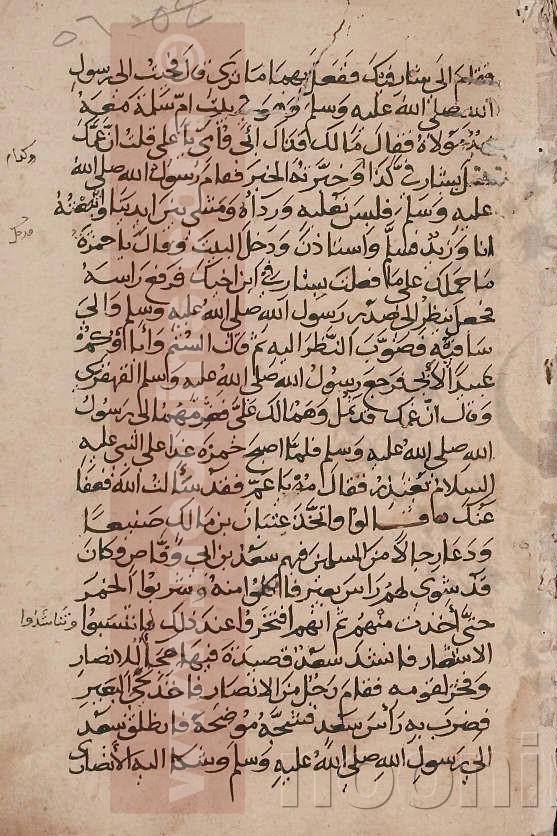 فقام الى شارفيك ففعل بهما ما ترى قال فجئت الى رسول
الله صلى الله عليه وسلم وهو في بيت ام سلمة معه
زيد مولاه فقال مالك فداك ابي وامي يا علي قلت ان عمك
فعل بشارفي كذا وخبرته الخبر فقام رسول الله صلى الله
عليه وسلم فلبس نعليه ورداه ومشى بين ايدينا واتبعته
انا وزيد فسلم واستاذن ودخل البيت وقال يا حمزة
ما حملك على ما فعلت بشارفي ابن اخيك فرفع راسه
فجعل ينظر الى صدر رسول الله صلى الله عليه وسلم والى
ساقيه فصوب النظر اليه ثم قال الستم واباكم
عبيدا لابي فرجع رسول الله صلى الله عليه وسلم القهقرى
وقال ان عمك قد ثمل وهما لك علي فغرمهما الى رسول
الله صلى الله عليه وسلم فلما اصبح حمزة غدا على النبي عليه
السلام يعتذر فقال مه يا عم فقد سألت الله فعفا
عنك قالوا واتخذ عتبان بن مالك صنيعا
ودعا رجالا من المسلمين فيهم سعد بن ابي وقاص وكان
قد شوى لهم راس بعير فاكلوا منه وشربوا الخمر
حتى أخذت منهم ثم انهم افتخروا عند ذلك فانتسبوا وتناشدوا
الاشعار فانشد سعد قصيدة فيها هجاء للانصار
وفخر لقومه فقام رجل من الانصار فاخذ لحى البعير
فضرب به رأس سعد فشجه موضحة فانطلق سعد
الى رسول الله صلى الله عليه وسلم وشكا اليه الأنصاري